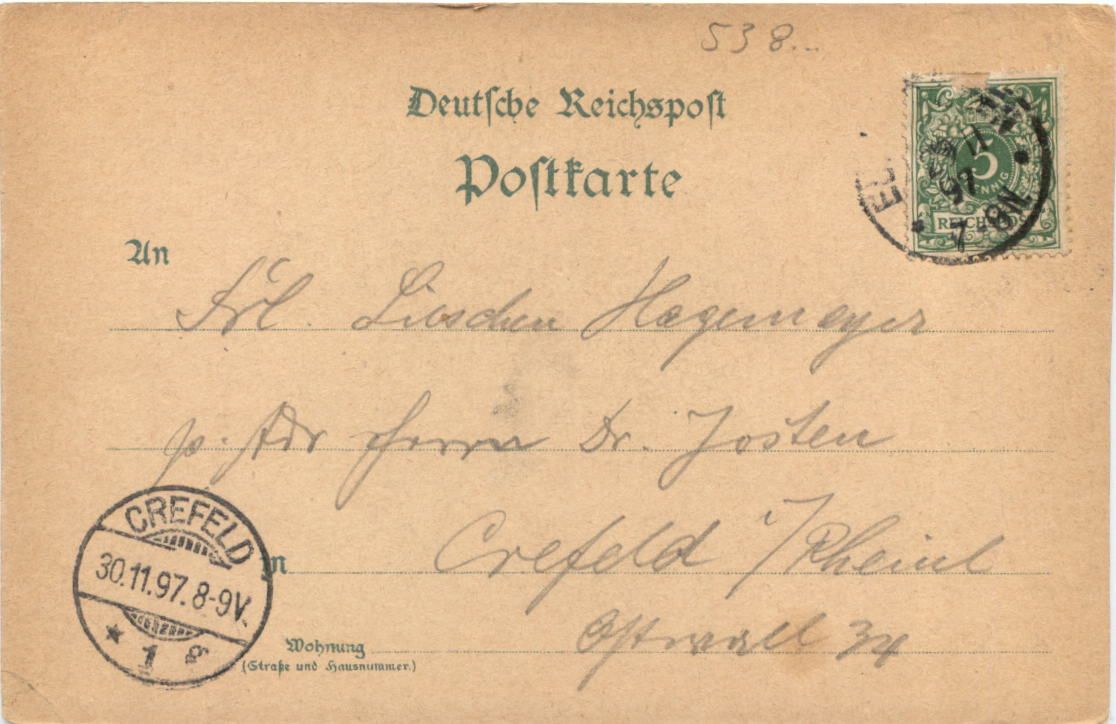 538
Deutsche Reichspost
Postkarte
5
PFENNIG
REICHSPOST
11
97
7-8N
An
Frl. Lieschen Hegemeyer
p. Adr Herrn Dr. Josten
in
Crefeld i/Rheinl
Wohnung
(Straße und Hausnummer.)
Ostwall 34
CREFELD
30.11.97. 8-9V.
* 1 g